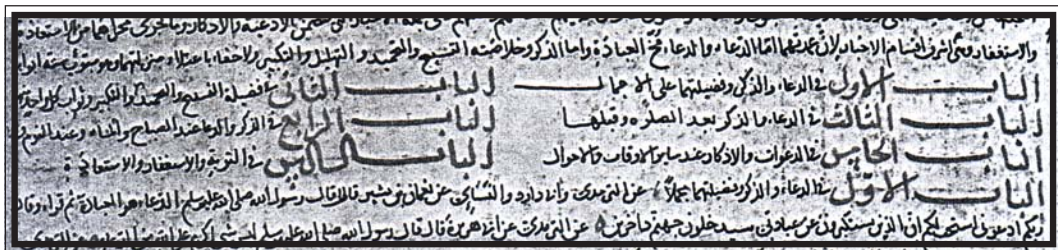 والاستغفار وهى اشرف اقسام الاخبار لان عمدتها امّا الدّعاء والدعاء مُخّ العبادة واما الذكر وخلاصته التسبيح والتحميد والتهليل والتكبير
البـاب الاول فى الدعاء والذكر وفضيلتهما على الاجمال البـاب الثانى فى فضيلة التسبيح والتحميد والتكبير وثواب كل واحد
البـاب الثالث فى الدعاء والذكر بعد الصلوة وقبلها البـاب الرابع فى الذكر والدعاء عند الصباح والمساء وعند النوم
البـاب الخامس فى الدعوات والاذكار عند ساير الاوقات والاحوال البـاب السادس فى التوبة والاستغفار والاستعاذة
البـاب الاوّل فى الدعاء والذكر وفضيلتهما مجملا عن الترمذى وابى داود والنسائى عن نعمان بن بشير قال قال رسول الله صلى الله عليه وسلم الدّعاء هو العبادة ثم قراء وقال
ربكم ادعونى استجب لكم ان الذين يستكبرون عن عبادتى سيدخلون جهنم داخرين عن الترمذى عن ابى هريرة قال قال رسول الله صلى الله عليه وسلم